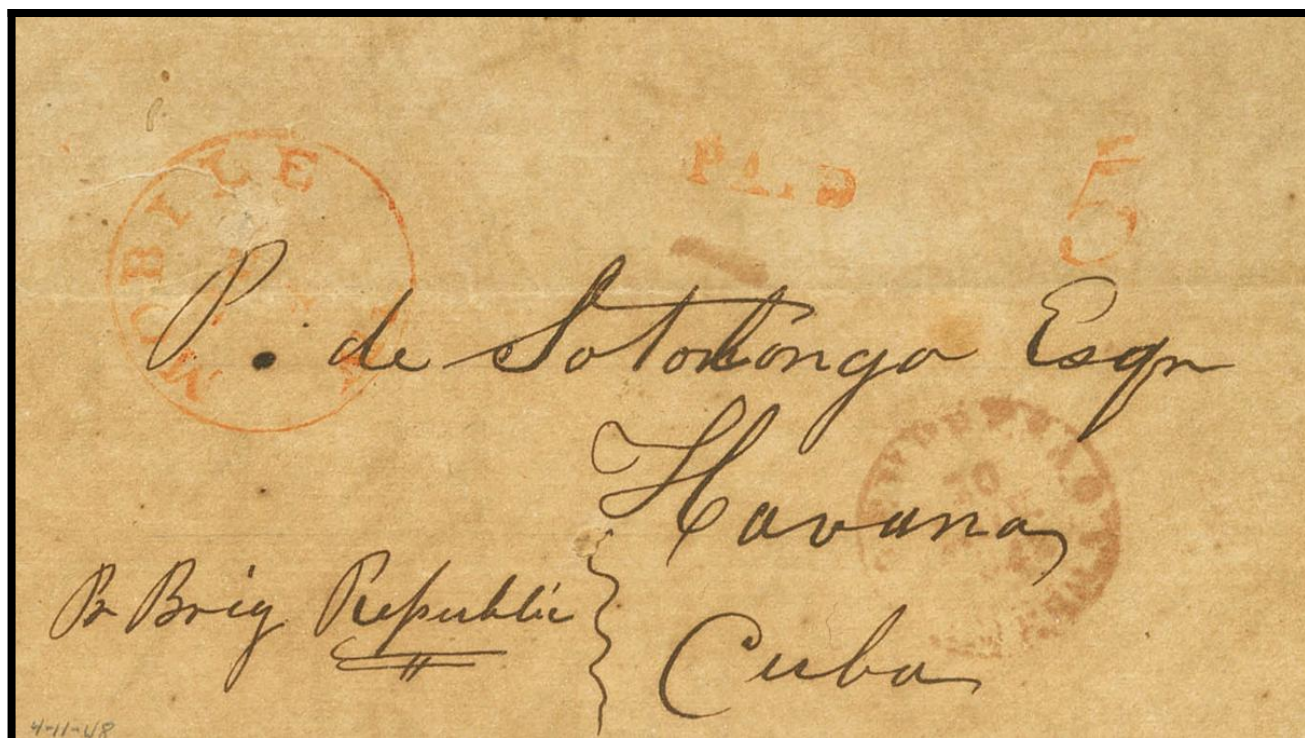 MOBILE
PAID
5
P. de Sotolongo Esqr
Havana
Pr Brig Republic
Cuba
4-11-48